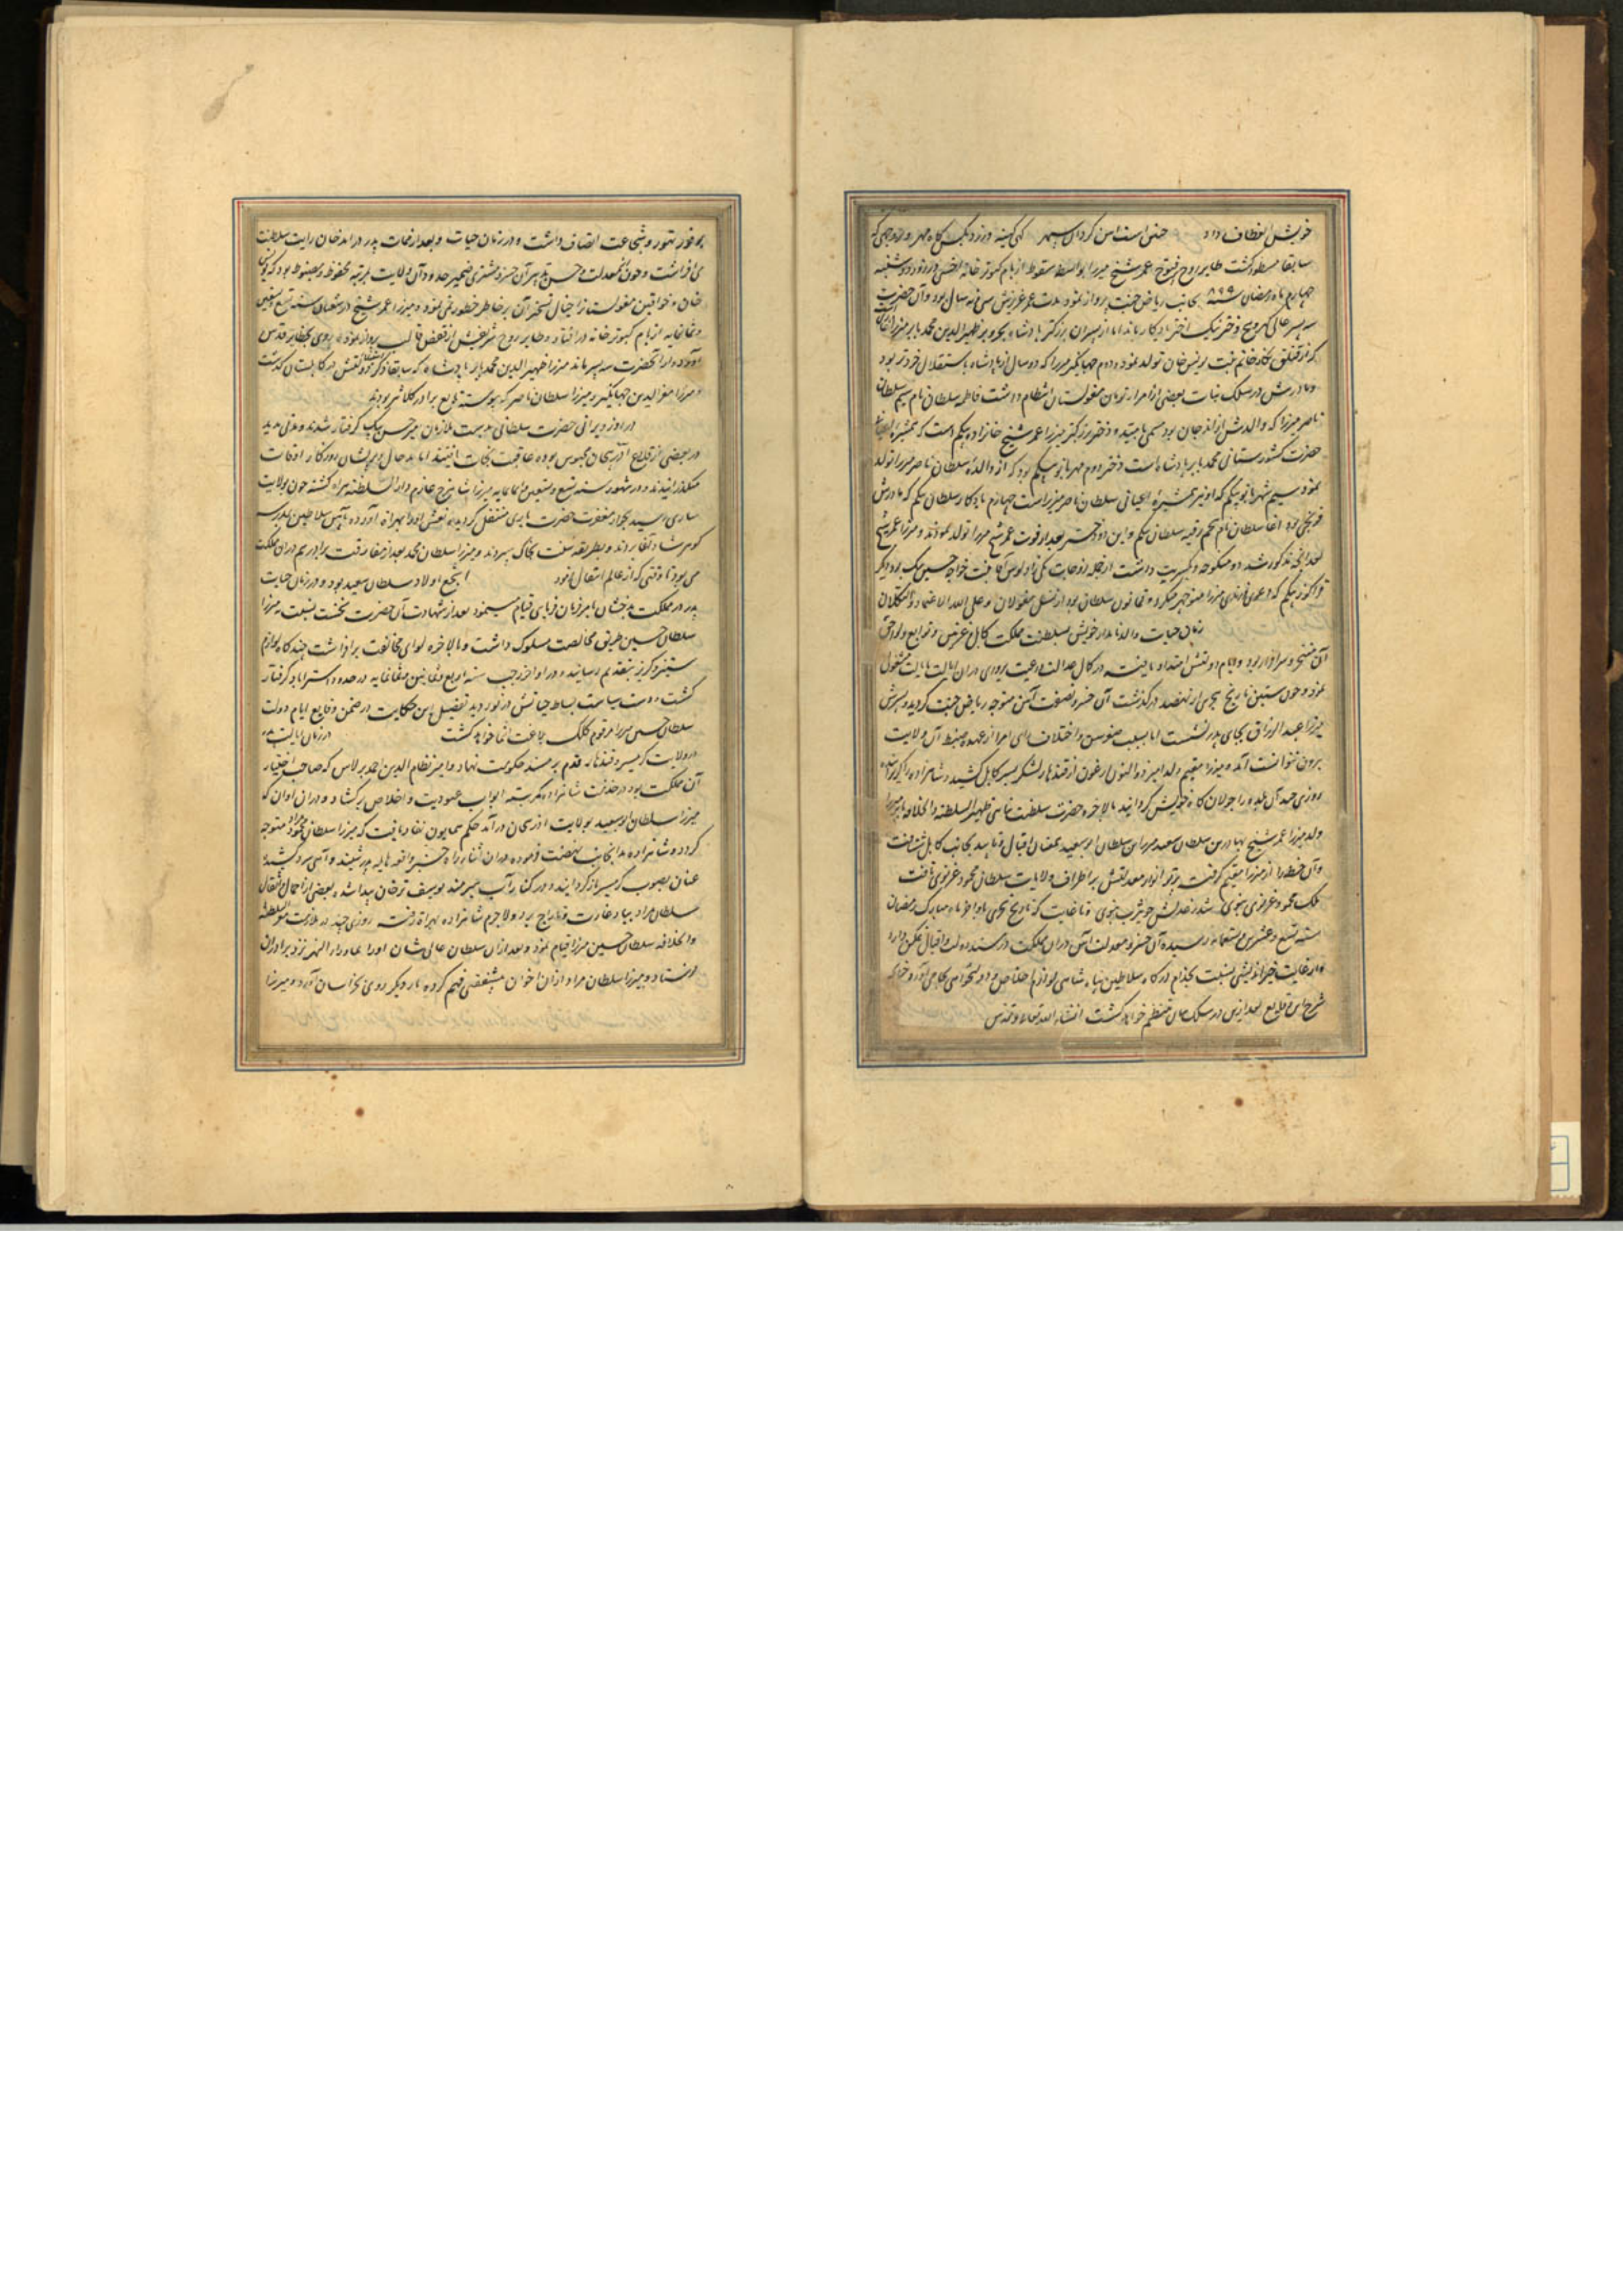 خویش انعطاف داد چنین است این کردان سپهر کهی کینه ورزد
سابقا مسطور گشت طایر روح پرفتوح عمر شیخ میرزا بواسطه سقوط از بام کبوتر خانه اخسی در روز دوشنبه
چهارم ماه رمضان سنه ۸۹۹ بجانب ریاض جنت پرواز نمود مدت عمر عزیزش سی و نه سال بود و آن حضرت
سه پسر عالی گهر و پنج دختر نیک اختر یادگار ماند اما از پسران بزرگتر پادشاه بحر و بر ظهیر الدین محمد بابر میرزا
که از قتلق نگار خانم بنت یونس خان تولد نموده و دوم جهانگیر میرزا که دو سال از پادشاه باستقلال خردتر بود
و مادرش در سلک بنات بعضی از امراء تومان مغولستان انتظام داشت فاطمه سلطان نام سیم سلطان
ناصر میرزا که والده‌اش از اندجان بود مسمی بامید و دختر بزرگتر میرزا عمر شیخ خانزاده بیگم است که همشیره
حضرت کشورستانی محمد بابر پادشاه است دختر دوم مهربانو بیگم بود که از والده سلطان ناصر میرزا تولد
نمود سیم شهربانو بیگم که او نیز همشیره اعیانی سلطان ناصر میرزاست چهارم یادگار سلطان بیگم که مادرش
آغا سلطان نام پنجم رقیه سلطان بیگم و این دو دختر بعد از فوت عمر شیخ میرزا تولد نمودند و میرزا عمر شیخ
بعد آنچه مذکور شد ده منکوحه و سریت داشت از جمله زوجات یکی اولوس آغا بنت خواجه حسین بیگ بود دیگر
قراکوز بیگم که دعوی فرزندی میرزا منوچهر میکرد از نسل مغولان و علی الله الاعتماد و التکلان
زمان حیات والد نامدار خویش بسلطنت مملکت کابل و غزنین و توابع و لواحق
آن مفتخر و سرافراز بود و ایام دولتش امتداد یافته در کمال عدالت و رعیت پروری در آن ایالت بایالت مشغولی
نمود و چون سنین تاریخ هجری از نهصد درگذشت آن خسرو نصفت آئین متوجه ریاض جنت گردید و پسرش
میرزا عبد الرزاق بجای پدر نشست اما بسبب صغر سن و اختلاف رای امرا از عهده ضبط آن ولایت
بیرون نتوانست آمد و میرزا مقیم ولد امیر ذو النون ارغون از قندهار لشکر بسر کابل کشیده شاهزاده را
روزی چند آن بلده را جولان گاه خویش گردانید بالاخره حضرت سلطنت پناهی ظهیر السلطنه و الخلافه بابر میرزا
ولد میرزا عمر شیخ بهادر بن سلطان سعید میرزا سلطان ابوسعید بعنان اقبال و تایید بجانب کابل شتافت
و آن خطه را از میرزا مقیم گرفت پرتو انوار معدلتش بر اطراف ولایات سلطان محمود غزنوی تافت
ملک محمود غزنوی شد و تا غایت که تاریخ هجری باواخر ماه مبارک رمضان
سنه تسع و عشرین و تسعمایه رسیده آن خسرو معدلت آئین در آن مملکت در مسند دولت و اقبال تمکن دارد
و از غایت خیراندیشی نسبت بخدام درگاه سلاطین پناه شاهی لوازم اخلاص و دولتخواهی بجای می‌آورد چنانچه
شرح این وقایع بعد ازین در سلک بیان منتظم خواهد گشت انشاء الله تعالی وتقدس
بوفور تهور و شجاعت اتصاف داشت و در زمان حیات و بعد از ممات پدر در اندجان رایت سلطنت
می‌افراشت و چون معدلت و حسن تدبیر آن خسرو مشتری ضمیر حدود آن ولایت بمرتبه محفوظ و مضبوط بود که
خان و خواقین مغولستان را خیال تسخیر آن بر خاطر خطور نمی‌نمود و میرزا عمر شیخ در رمضان سنه تسع و تسعین
و ثمانمایه از بام کبوتر خانه در افتاد و طایر روح شریفش از قفص قالب پرواز نموده روی بحظایر قدس
آورد و از آنحضرت سه پسر ماند میرزا ظهیر الدین محمد بابر پادشاه که سابقا ذکر در کابلستان گذشت
و میرزا معز الدین جهانگیر و میرزا سلطان ناصر که پیوسته تابع برادر کلانتر بودند
در روز ویرانی حضرت سلطانی بدست ملازمان امیر حسن بیک گرفتار شدند و مدتی مدید
در بعضی از قلاع آذربیجان محبوس بوده عاقبت نجات یافتند اما بد حال و پریشان روزگار اوقات
میگذرانیدند و در شهور سنه تسع و تسعین و ثمانمایه میرزا شاهرخ عازم دار السلطنه هراه گشته چون بولایت
ساری رسید بجوار مغفرت حضرت باری منتقل گردید و نعش او را بهراة آورده بآئین سلاطین بمدرسه
گوهرشاد آغا بردند و بطریقه سنت بخاک سپردند و میرزا سلطان محمد بعد از مفارقت برادر هم در آن مملکت
می‌بود تا وقتی که از عالم انتقال نمود اشجع اولاد سلطان سعید بود و در زمان حیات
پدر در مملکت بدخشان بامر فرمان فرمای قیام مینمود بعد از شهادت آن حضرت نخست نسبت بمیرزا
سلطان حسین طریق مخالصت مسلوک داشت و بالاخره لوای مخالفت برافراشت چند گاه لوازم
ستیز و گریز بتقدیم رسانید و در اواخر رجب سنه اربع و ثمانین و ثمانمایه در حدود استراباد گرفتار
گشت و دست سیاست بساط حیاتش در نوردید تفصیل این حکایت در ضمن وقایع ایام دولت
سلطان حسین میرزا مرقوم کلک بلاغت انتما خواهد گشت در زمان ایالت پدر
در ولایت گرمسیر و قندهار قدم بر مسند حکومت نهاد و امیر نظام الدین احمد برلاس که صاحب اختیار
آن مملکت بود در خدمت شاهزاده کمر بسته ابواب عبودیت و اخلاص برگشاد و در آن اوان که
میرزا سلطان ابوسعید بولایت اذربیجان درآمد حکم همایون نفاد یافت که میرزا سلطان مراد متوجه
گردد و شاهزاده بدانجانب نهضت فرموده در آن اثناء راه خبر واقعه هایله پدر شنید و آهی سرد کشید
عنان بصوب گرمسیر باز گردانید و در کنار آب هیرمند یوسف ترخان پیدا شده بعضی از احمال و اثقال
سلطان مراد بباد غارت و تاراج برد و لاجرم شاهزاده بهراة رفته روزی چند در ملازمت معز السلطنه
والخلافه سلطان حسین میرزا قیام نمود و بعد از آن سلطان عالی شان او را بماوراء النهر نزد برادران
فرستاد و میرزا سلطان مراد از آن اخوان بی‌شفقتی فهم کرده بار دیگر روی بخراسان آورد و میرزا